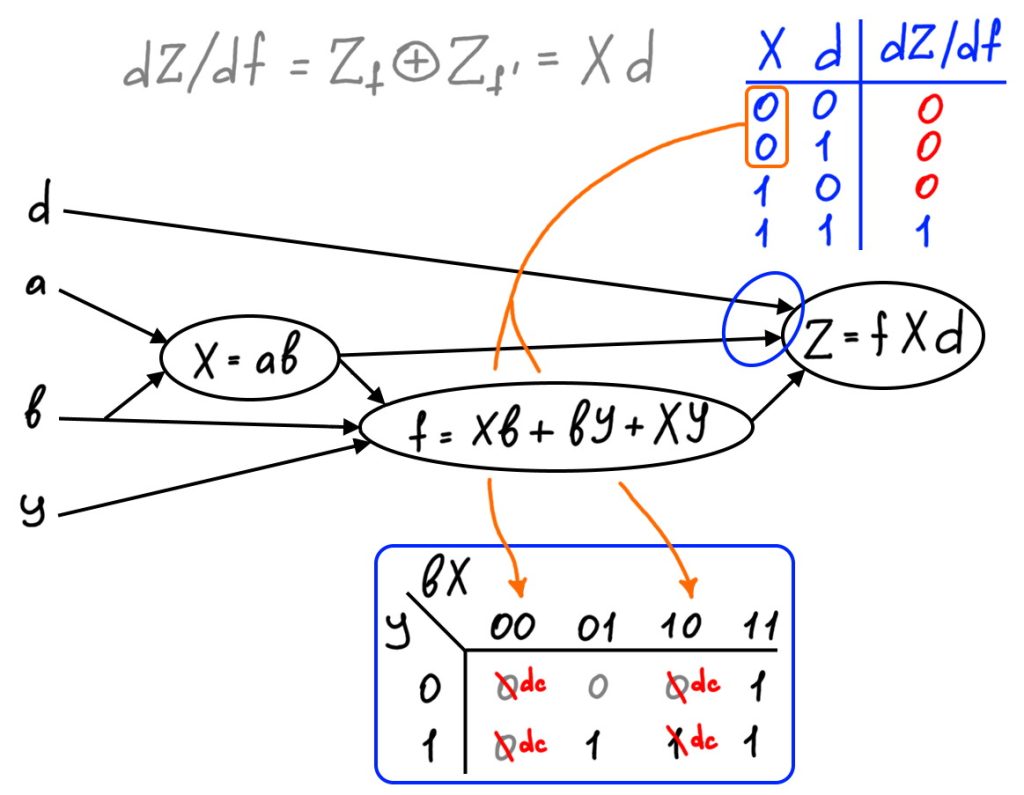 dZ/df = Z_f ⊕ Z_f' = X d
X d | dZ/df
0 0 | 0
0 1 | 0
1 0 | 0
1 1 | 1
d
a
b
y
X = ab
f = Xb + by + Xy
Z = f X d
bX
y 00 01 10 11
0 0 dc 0 0 dc 1
1 0 dc 1 1 dc 1